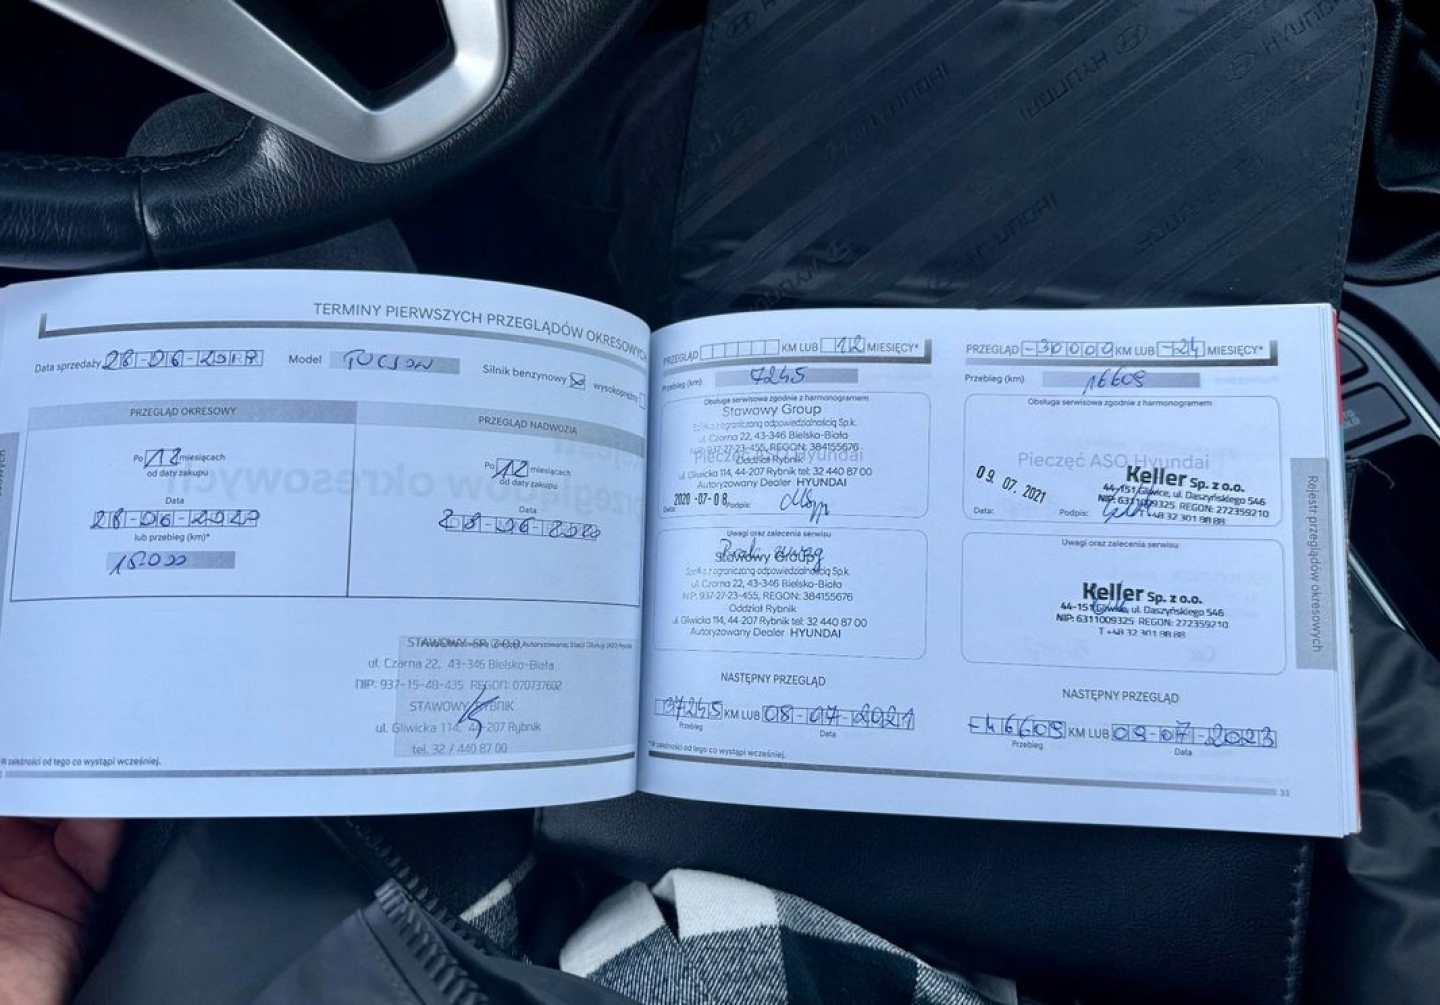 HYUNDAI
HYUNDAI
TERMINY PIERWSZYCH PRZEGLĄDÓW OKRESOWYCH
Data sprzedaży 28-06-2019 Model TUCSON Silnik benzynowy wysokoprężny
PRZEGLĄD OKRESOWY
Po 12 miesiącach
od daty zakupu
Data
28-06-2020
lub przebieg (km)*
15.000
PRZEGLĄD NADWOZIA
Po 12 miesiącach
od daty zakupu
Data
28-06-2020
STAWOWY SP. Z O.O.
ul. Czarna 22, 43-346 Bielsko-Biała
NIP: 937-15-48-435 REGON: 070737602
STAWOWY RYBNIK
ul. Gliwicka 114, 44-207 Rybnik
tel. 32 / 440 87 00
*W zależności od tego co wystąpi wcześniej.
PRZEGLĄD KM LUB 12 MIESIĘCY*
Przebieg (km) 7245
Obsługa serwisowa zgodnie z harmonogramem
Stawowy Group
Spółka z ograniczoną odpowiedzialnością Sp.k.
ul. Czarna 22, 43-346 Bielsko-Biała
NIP: 937-27-23-455, REGON: 384155676
Pieczęć ASO Hyundai
Oddział Rybnik
ul. Gliwicka 114, 44-207 Rybnik tel: 32 440 87 00
Autoryzowany Dealer HYUNDAI
Data: 2020-07-08 Podpis:
Uwagi oraz zalecenia serwisu
Brak uwag
Stawowy Group
Spółka z ograniczoną odpowiedzialnością Sp.k.
ul. Czarna 22, 43-346 Bielsko-Biała
NIP: 937-27-23-455, REGON: 384155676
Oddział Rybnik
ul. Gliwicka 114, 44-207 Rybnik tel: 32 440 87 00
Autoryzowany Dealer HYUNDAI
NASTĘPNY PRZEGLĄD
37245 KM LUB 08-07-2021
Przebieg Data
*W zależności od tego co wystąpi wcześniej.
PRZEGLĄD -30000 KM LUB -24 MIESIĘCY*
Przebieg (km) 16609
Obsługa serwisowa zgodnie z harmonogramem
Pieczęć ASO Hyundai
Keller Sp. z o.o.
44-151 Gliwice, ul. Daszyńskiego 546
NIP: 6311009325 REGON: 272359210
T +48 32 301 88 88
09. 07. 2021
Data: Podpis:
Uwagi oraz zalecenia serwisu
Keller Sp. z o.o.
44-151 Gliwice, ul. Daszyńskiego 546
NIP: 6311009325 REGON: 272359210
T +48 32 301 88 88
NASTĘPNY PRZEGLĄD
-46609 KM LUB 09-07-2023
Przebieg Data
33
Rejestr przeglądów okresowych